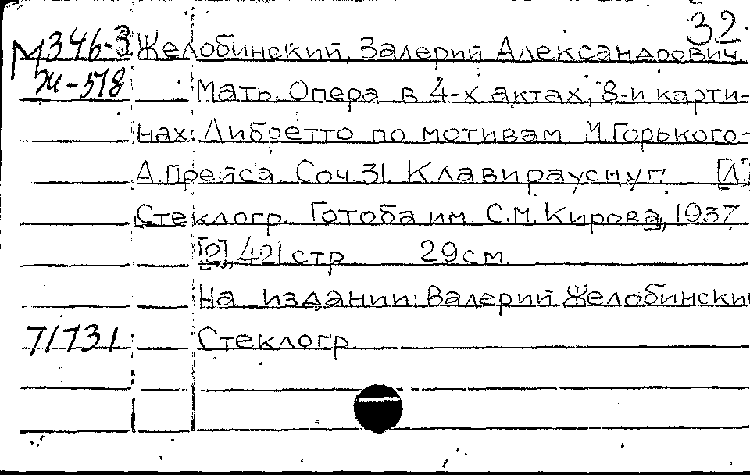 32.
М346-3 Желобинский, Залерий Александрович.
Ж-518 Мать. Опера в 4-х актах, 8-и карти-
нах. Либретто по мотивам М.Горького-
А.Прейса. Соч.31. Клавираусцуг. [Л]
Стеклогр. Готоба им. С.М. Кирова, 1937
[2], 421 стр. 29см.
На издании: Валерий Желобински
71731 Стеклогр.